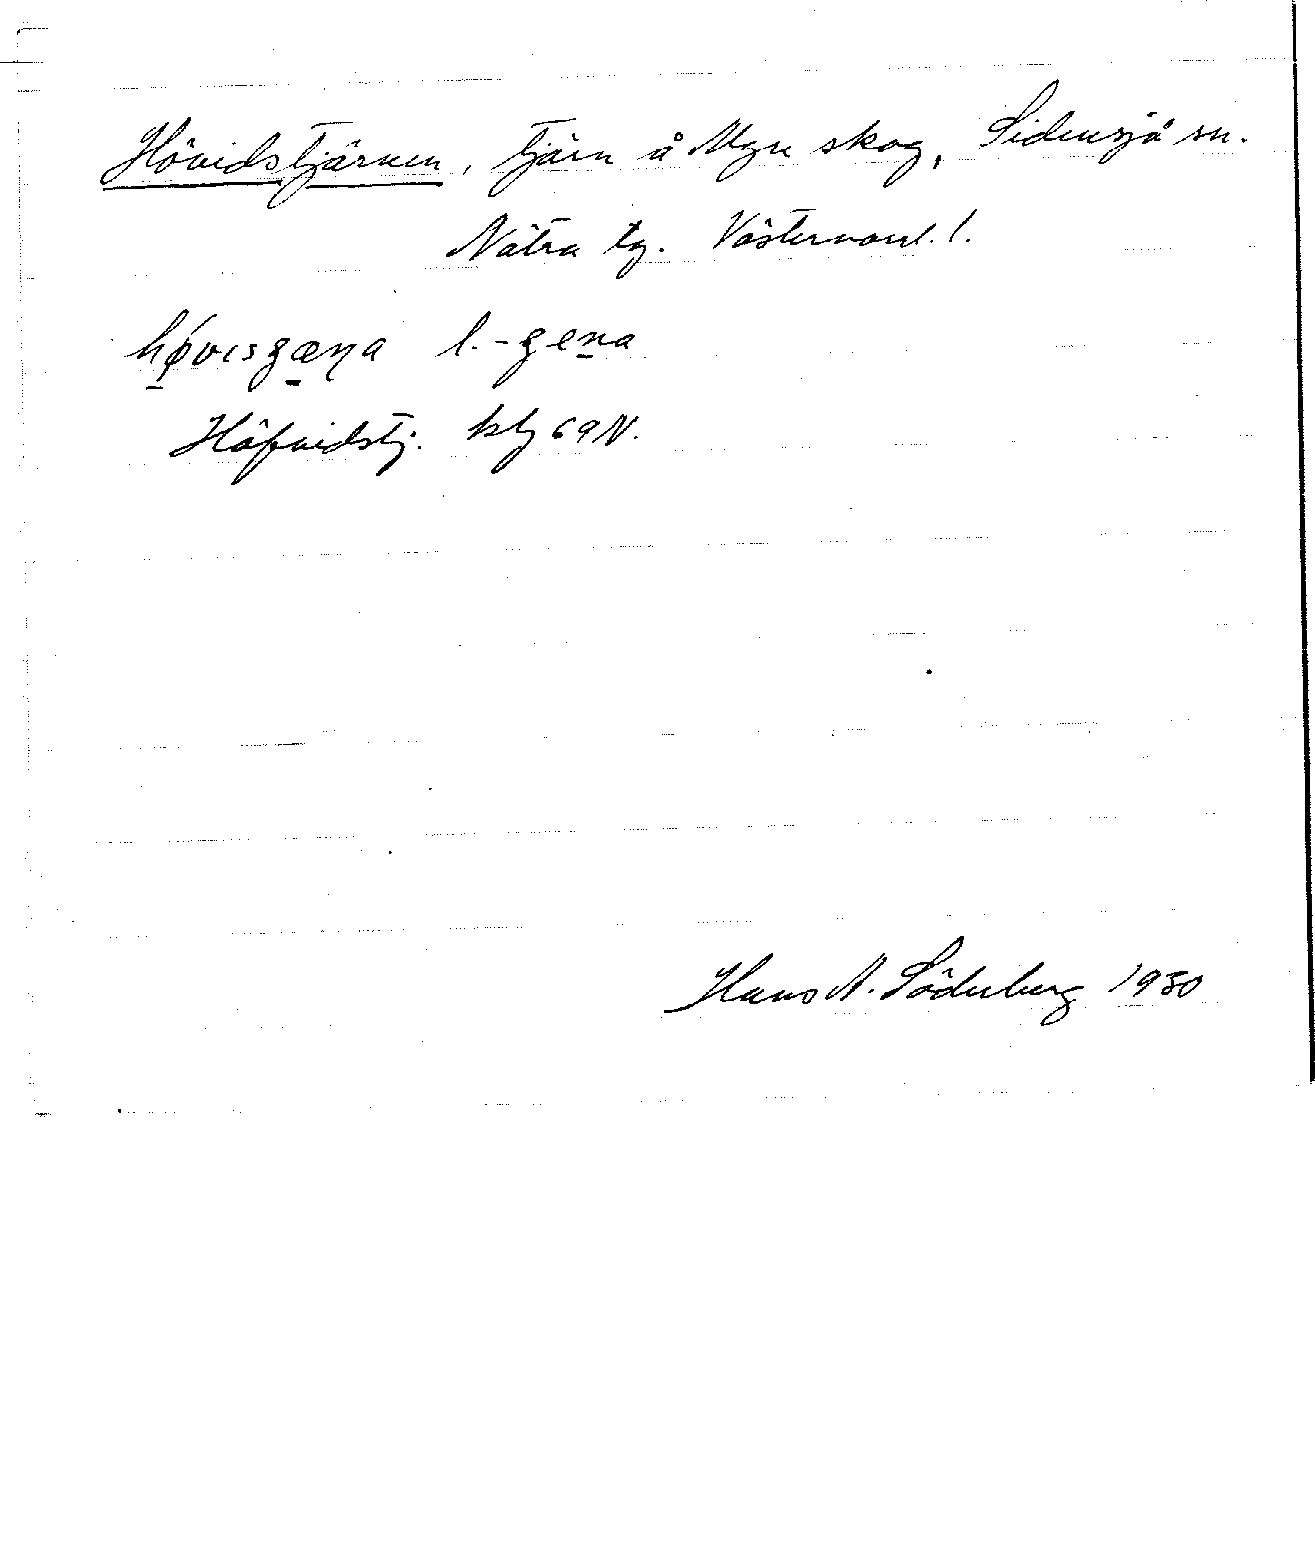 Hövidstjärnen, tjärn å Myre skog, Sidensjö sn.
Nätra tg. Västernorrl. l.
Höfvidstj. ktg 69 N.
Hans A. Söderberg 1930